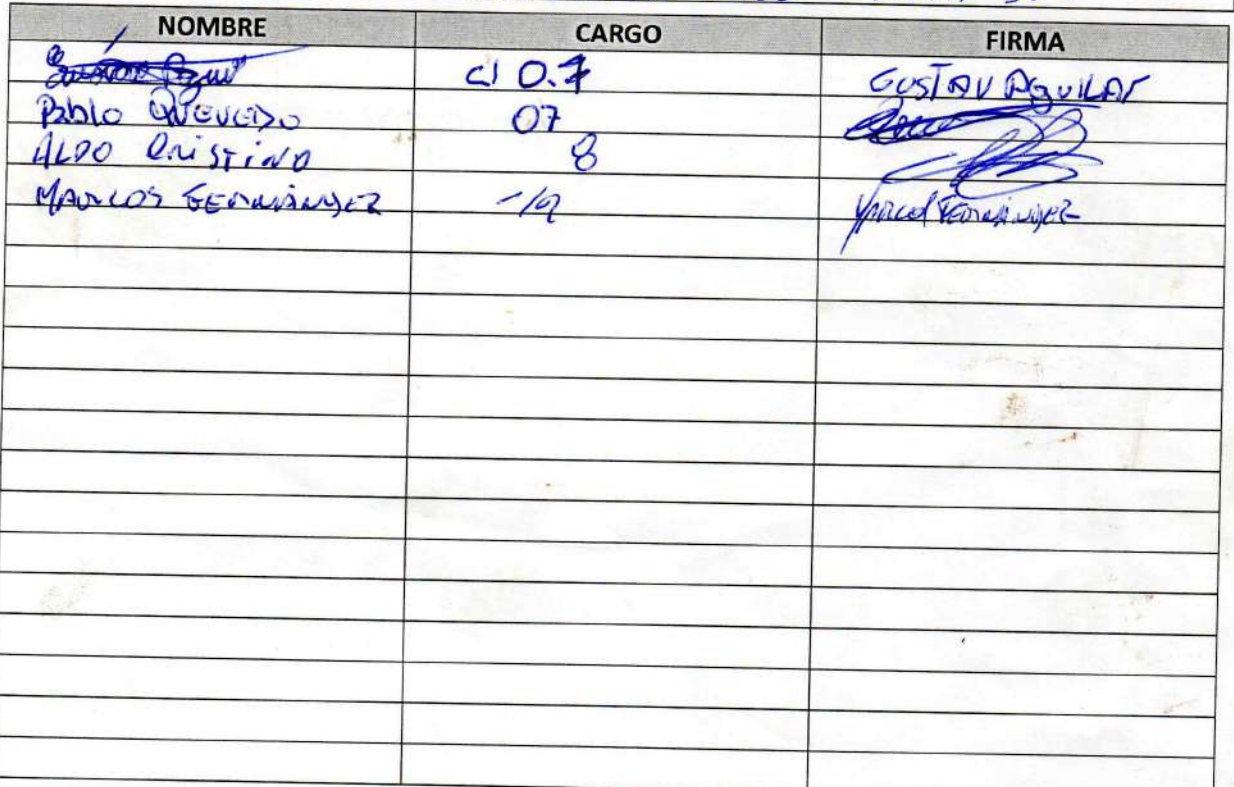 NOMBRE CARGO FIRMA
GUSTAV AGUILAR
Pablo QUEVEDO 07
ALDO CRISTINO 8
MARCOS FERNÁNDEZ MARCOS FERNÁNDEZ